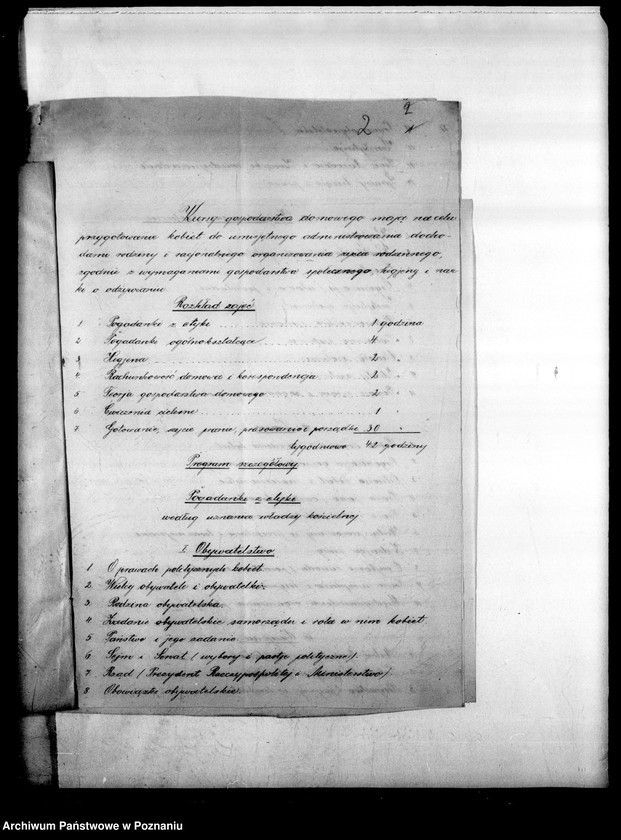 2
2
Kursy gospodarstwa domowego mają na celu
przygotowanie kobiet do umiejętnego administrowania docho-
dami rodziny i racjonalnego organizowania życia rodzinnego,
zgodnie z wymaganiami gospodarstwa społecznego, higjeny i nau-
ki o odżywianiu.
Rozkład zajęć
1 Pogadanki z etyki 1 godzina
2 Pogadanki ogólnokształcące 4 "
3 Higjena 2 "
4 Rachunkowość domowa i korespondencja 2 "
5 Teorja gospodarstwa domowego 2 "
6 Ćwiczenia cielesne 1 "
7. Gotowanie, szycie, pranie, prasowanie i porządki 30 "
tygodniowo 42 godziny
Program szczegółowy
Pogadanki z etyki
według uznania władzy kościelnej
I. Obywatelstwo
1. O prawach politycznych kobiet.
2. Wielcy obywatele i obywatelki.
3. Rodzina obywatelska.
4. Zadanie obywatelskie samorządu i rola w nim kobiet.
5 Państwo i jego zadanie
6. Sejm i Senat (wybory i partje polityczne).
7. Rząd (Prezydent Rzeczypospolitej i Ministerstwa)
8 Obowiązki obywatelskie.
Archiwum Państwowe w Poznaniu